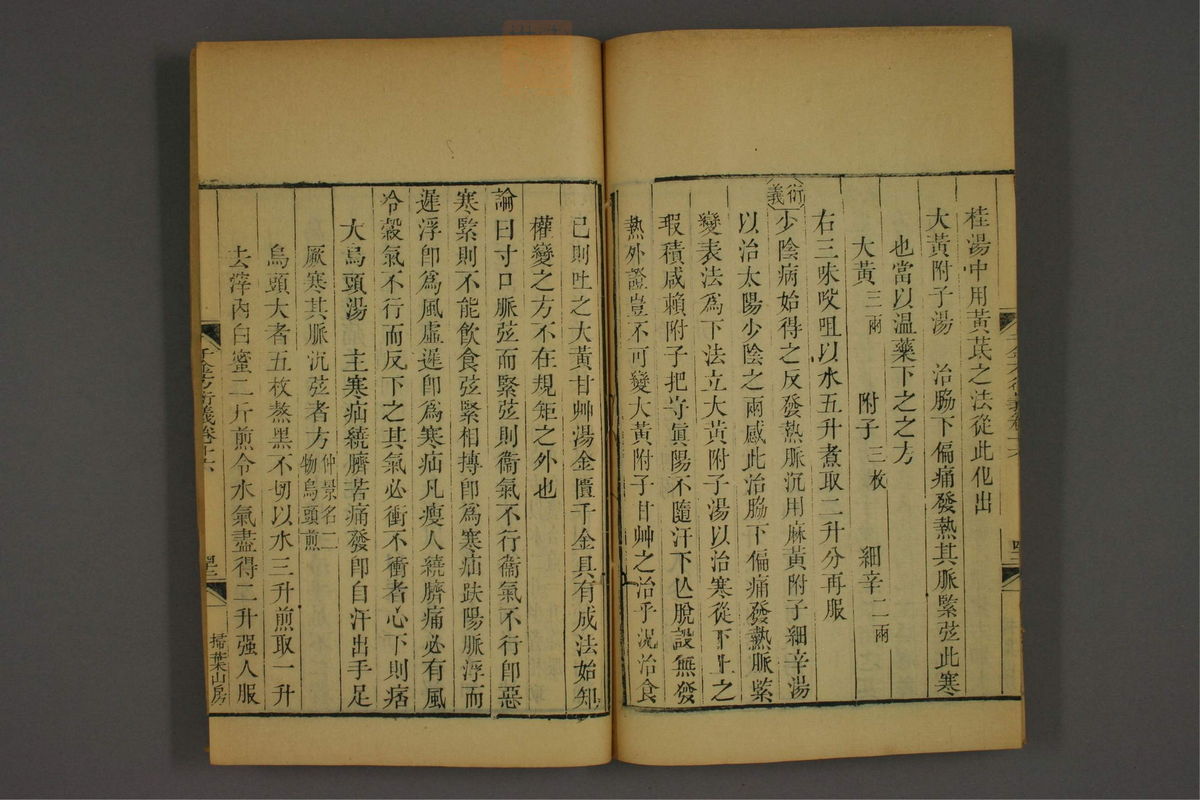 桂湯中用黃芪之法從此化出
大黃附子湯　治脇下偏痛發熱其脈緊弦此寒
也當以温藥下之之方
大黃三兩　附子三枚　細辛二兩
右三味㕮咀以水五升煮取二升分再服
衍義
少陰病始得之反發熱脈沉用麻黃附子細辛湯
以治太陽少陰之兩感此治脇下偏痛發熱脈緊
變表法爲下法立大黃附子湯以治寒從下上之
瑕積咸賴附子把守眞陽不隨汗下亾脫設無發
熱外證豈不可變大黃附子甘艸之治乎況治食
已則吐之大黃甘艸湯金匱千金具有成法始知
權變之方不在規矩之外也
論曰寸口脈弦而緊弦則衞氣不行衞氣不行卽惡
寒緊則不能飲食弦緊相搏卽爲寒疝趺陽脈浮而
遲浮卽爲風虛遲卽爲寒疝凡瘦人繞臍痛必有風
冷穀氣不行而反下之其氣必衝不衝者心下則痞
大烏頭湯　主寒疝繞臍苦痛發卽自汗出手足
厥寒其脈沉弦者方仲景名二物烏頭煎
烏頭大者五枚熬黑不切以水三升煎取一升
去滓內白蜜二斤煎令水氣盡得二升强人服
千金方衍義卷十六
掃葉山房